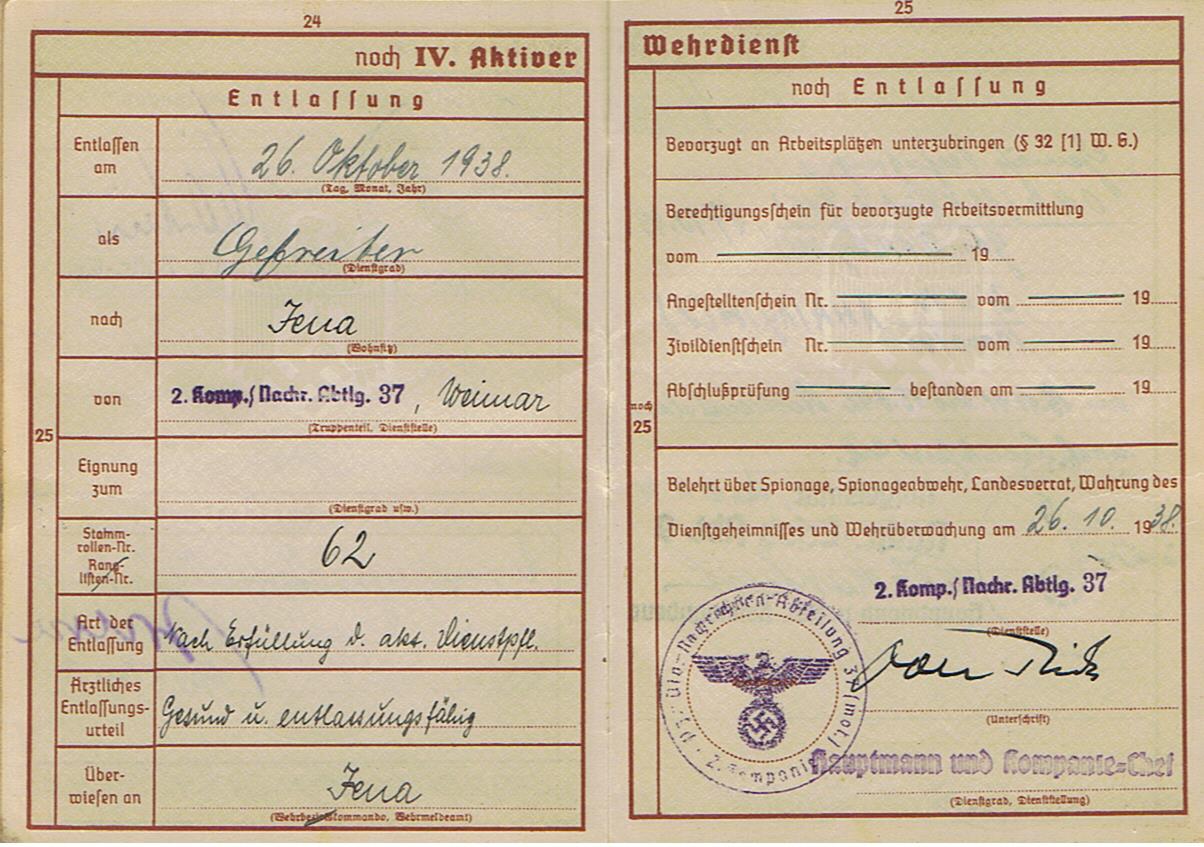 24
noch IV. Aktiver
Entlassung
Entlassen am
26. Oktober 1938.
(Tag, Monat, Jahr)
als
Gefreiter
(Dienstgrad)
nach
Jena
(Wohnsitz)
von
2. Komp./ Nachr. Abtlg. 37, Weimar
(Truppenteil, Dienststelle)
25
Eignung zum
(Dienstgrad usw.)
Stamm-
rollen-Nr.
Rang-
listen-Nr.
62
Art der
Entlassung
Nach Erfüllung d. akt. Dienstpfl.
Ärztliches
Entlassungs-
urteil
Gesund u. entlassungsfähig
Über-
wiesen an
Jena
(Wehrbezirkskommando, Wehrmeldeamt)
25
Wehrdienst
noch Entlassung
Bevorzugt an Arbeitsplätzen unterzubringen (§ 32 [1] W. G.)
Berechtigungsschein für bevorzugte Arbeitsvermittlung
vom 19
Angestelltenschein Nr. vom 19
Zivildienstschein Nr. vom 19
Abschlußprüfung bestanden am 19
noch
25
Belehrt über Spionage, Spionageabwehr, Landesverrat, Wahrung des
Dienstgeheimnisses und Wehrüberwachung am 26. 10. 1938.
2. Komp./ Nachr. Abtlg. 37
(Dienststelle)
(Unterschrift)
Nachrichten-Abteilung 37 (mot)
2. Kompanie
Hauptmann und Kompanie-Chef
(Dienstgrad, Dienststellung)